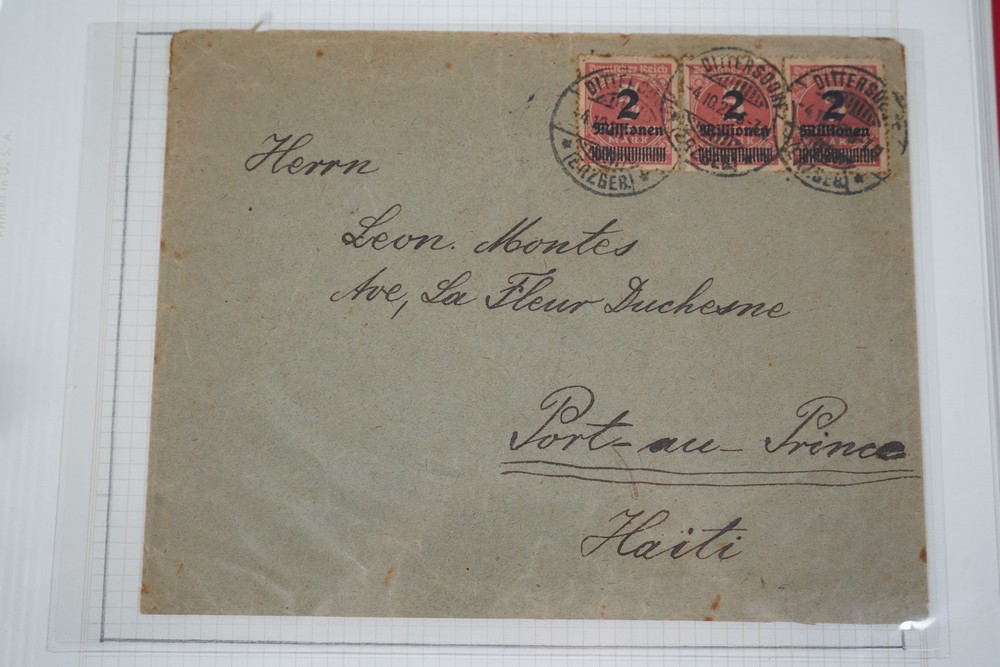 Deutsches Reich
2
Millionen
MARK
2
Millionen
2
Millionen
DITTERSDORF
4.10.2
(ERZGEB)
Herrn
Leon. Montes
Ave, La Fleur Duchesne
Port-au-Prince
Haïti
Printed in U.S.A.